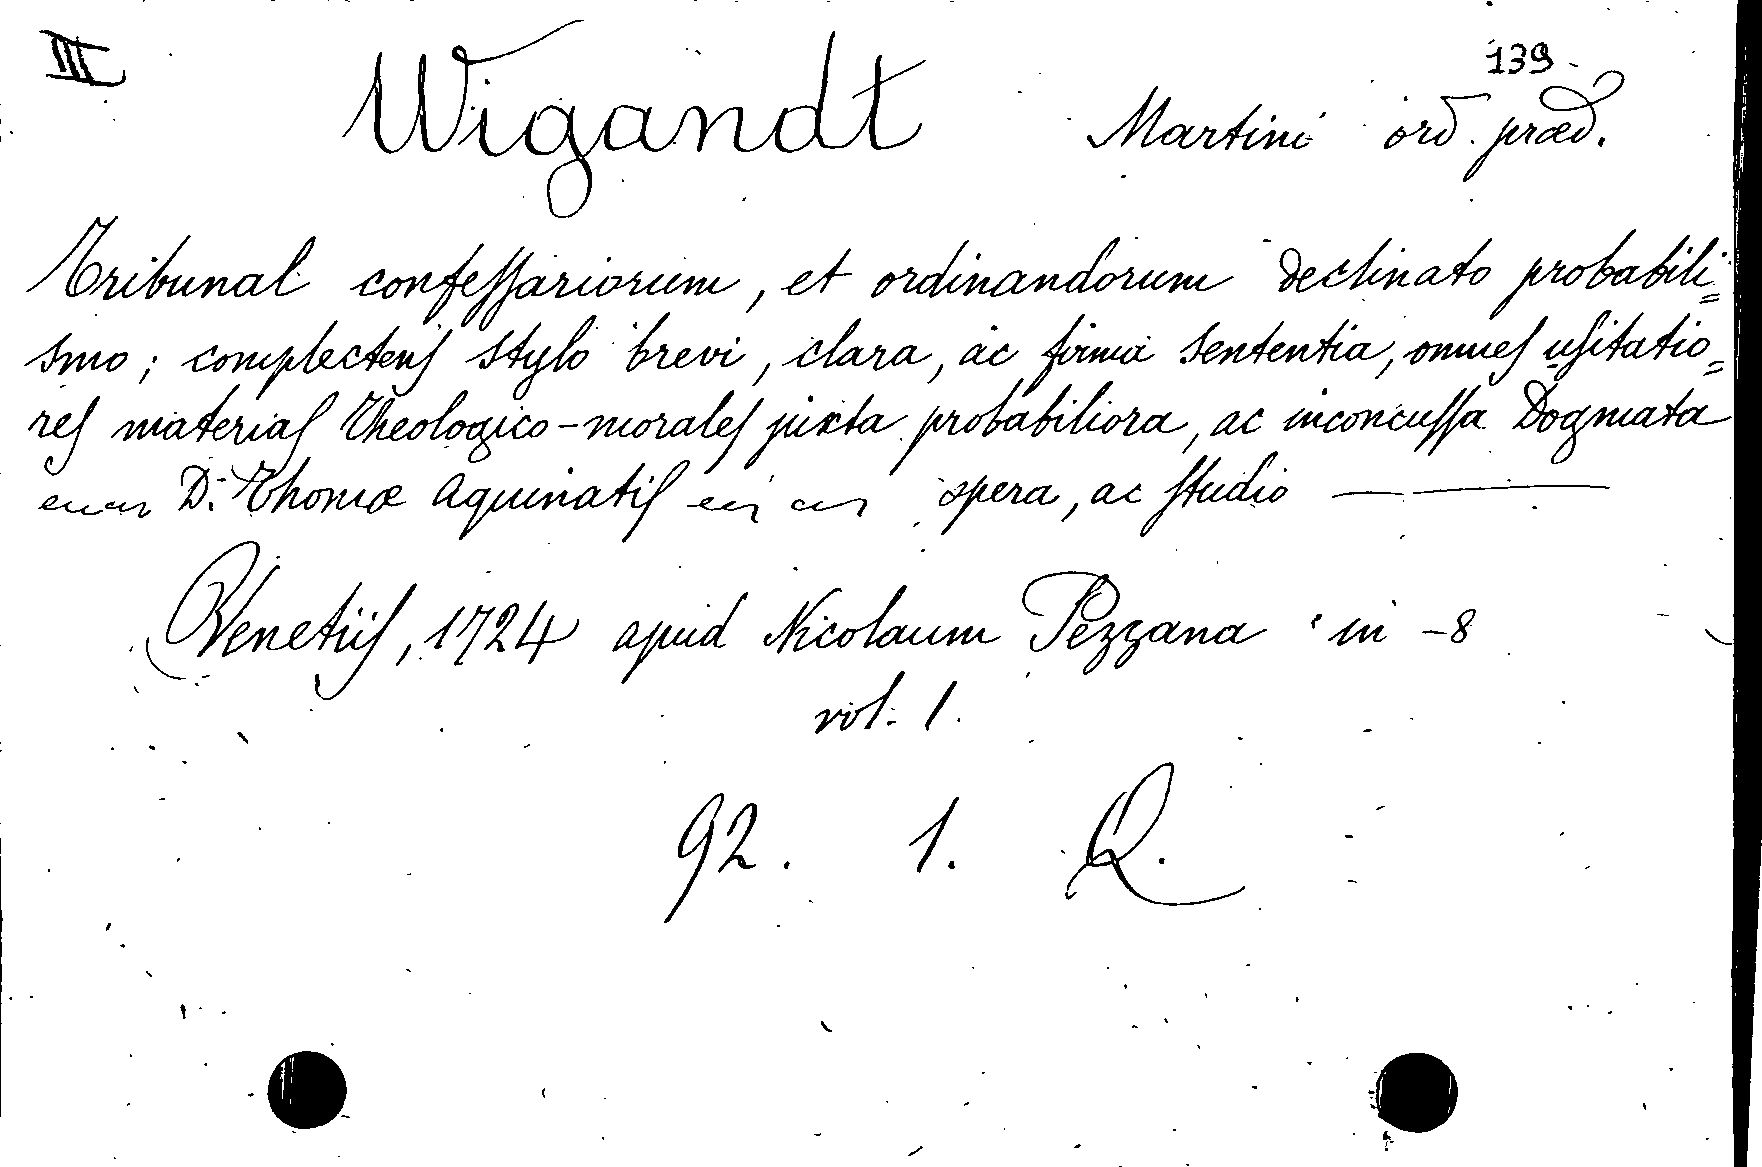 III
139
Wigandt Martini ord. præd.
Tribunal confessariorum, et ordinandorum declinato probabili=
smo; complectens stylo brevi, clara, ac firma sententia, omnes usitatio=
res materias Theologico-morales juxta probabiliora, ac inconcussa Dogmata
D. Thomæ Aquinatis opera, ac studio —
Venetiis, 1724 apud Nicolaum Pezzana in -8
vol. 1.
92. 1. Q.